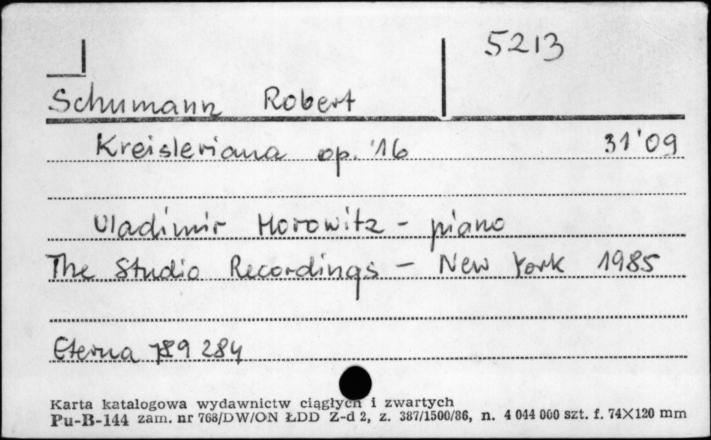 5213
Schumann Robert
Kreisleriana op. 16 31'09
Vladimir Horowitz - piano
The Studio Recordings - New York 1985
Eterna 789 284
Karta katalogowa wydawnictw ciągłych i zwartych
Pu-B-144 zam. nr 768/DW/ON ŁDD Z-d 2, z. 387/1500/86, n. 4 044 000 szt. f. 74X120 mm